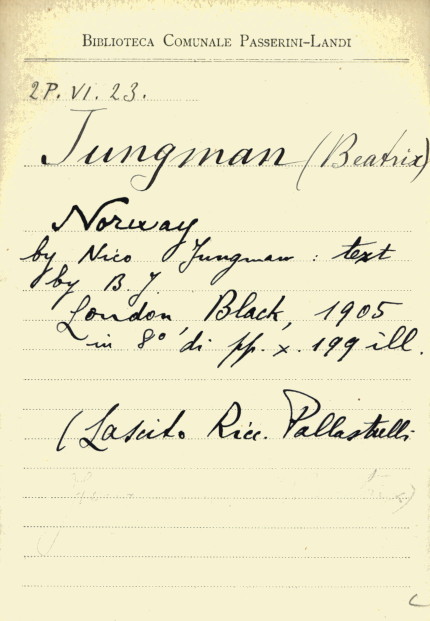 BIBLIOTECA COMUNALE PASSERINI-LANDI
2P. VI. 23.
Jungman (Beatrix)
Norway
by Nico Jungman : text
by B. J.
London, Black, 1905
in 8º di pp. x. 199 ill.
(Lascito Ricc. Pallastrelli